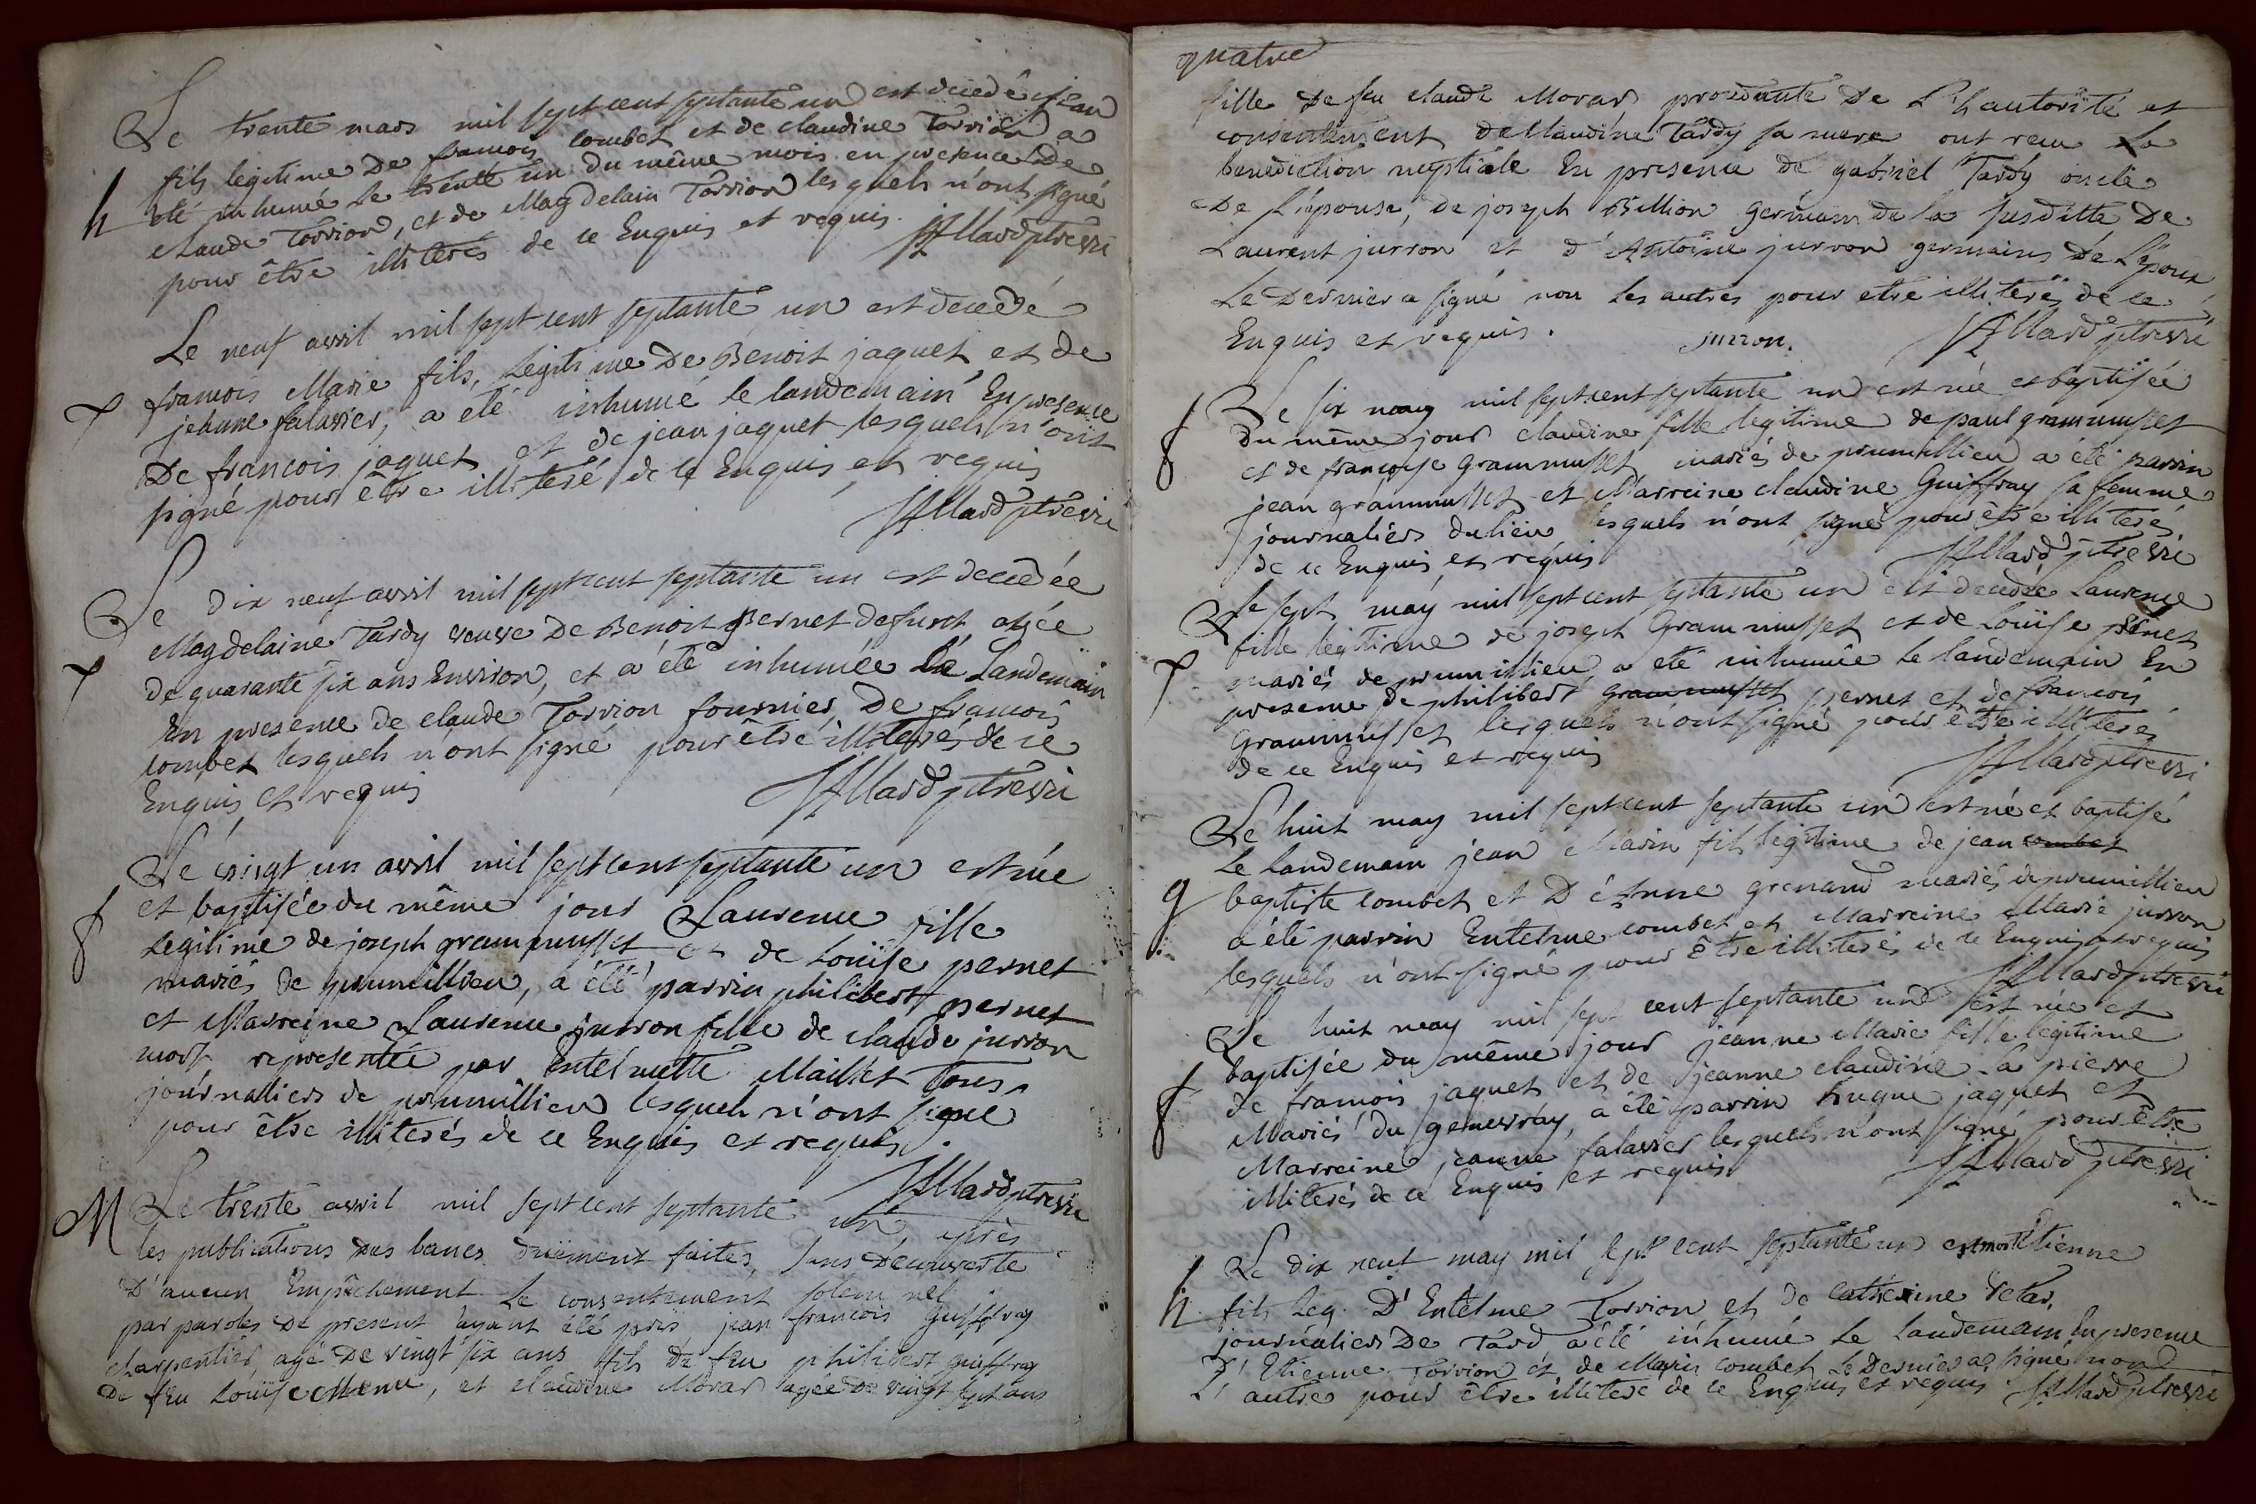 Le trente mars mil sept cent septante un est décédé jean
fils legitime De francois combet et de claudine Torrion a
h
été inhumé le trente un du même mois en presence De
claude Torrion, et de Magdelain Torrion lesquels n'ont signé
pour être illiterés de ce Enquis et requis.
Allard ptre vri
Le neuf avril mil sept cent septante un est decedé
francois Marie fils, Legitime De Benoit jaquet, et de
jehanne falasses, a été inhumé le landemain En presence
De francois jaquet et de jean jaquet lesquels n'ont
signé pour être illiteré de ce Enquis et requis
Allard ptre vri
Le dix neuf avril mil sept cent septante un est decedée
Magdelaine Tardy veuve De Benoit Bernet defunct agée
de quarante six ans Environ, et a été inhumée le Landemain
En presence de claude Torrion fournier De francois
combet lesquels n'ont signé pour être illiteres de ce
Enquis, et requis
Allard ptre vri
Le vingt un avril mil sept cent septante un est née
f
et baptisée du même jour Laurence fille
Legitime de joseph grammusset et de Louise pernet
mariés de prumillieu, a été parrin philibert pernet
et Marreine Laurence jurron fille de claude jurron
mort representée par Entelmette Maillet Tous
journaliers de prumillieu lesquels n'ont signé
pour être illiterés de ce Enquis et requis.
Allard ptre vri
M
Le trente avril mil sept cent septante un après
les publications des bancs duëment faites, sans Decouverte
D'aucun Empêchement Le consentement solemnel
par paroles De present ayant été pris, jean francois guiffray
charpentier, agé De vingt six ans fils De feu philibert guiffray
De feu Louise Menu, et claudine Morar agée De vingt sept ans
quatre
fille De feu claude Morar, procedante De L'hautorité et
consentement de claudine Tardy sa mere ont recu La
benediction nuptiale En presence de gabriel Tardy oncle
De l'épouse, de joseph Billion germain de la susditte De
Laurent jurron et d'Antoine jurron germains De L'epoux,
Le Dernier a signé non Les autres pour etre illiterés de ce
Enquis et requis.
jurron.
Allard ptre vri
Le six may mil sept cent septante un est née et baptisée
f
du même jour claudine fille legitime de paul grammusset
et de francoise Grammusset, mariés de prumillieu a été parrin
jean grammusset et Marreine claudine Guiffray sa femme
journaliers du lieu lesquels n'ont signé pour être illiterés
de ce Enquis et requis
Allard ptre vri
Le sept may mil sept cent septante un est decedée Laurence
fille legitime de joseph Grammusset et de Louïse pernet
mariés de prumillieu, a été inhumée Le landemain En
presence De philibert grammusset pernet et de francois
Grammusset lesquels n'ont signé pour être illiterés
de ce Enquis et requis
Allard ptre vri
Le huit may mil sept cent septante un est né et baptisé
Le landemain jean Marin fils legitime de jean combet
g
baptiste combet et D'éAnne grenand mariés de prumillieu
a été parrin Entelme combet et Marreine Marie jurron
lesquels n'ont signé pour être illiterés de ce Enquis et requis
Allard ptre vri
Le huit may mil sept cent septante un est née et
baptisée du même jour jeanne Marie fille legitime
f
de francois jaquet et de Jeanne claudine La pierre
Mariés du genevray, a été parrin hugue jaquet et
Marreine jeanne falasses lesquels n'ont signé pour être
illiterés de ce Enquis et requis
Allard ptre vri
Le dix neuf may mil sept cent septante un est mort Etienne
h
fils Leg. D'Entelme Torrion et de catherine Velas,
journaliers De Tard a été inhumé Le landemain En presence
D'Etienne Torrion et de Marin combet, Le Dernier a signé non
L'autre pour être illiteré de ce Enquis et requis Allard ptre vri